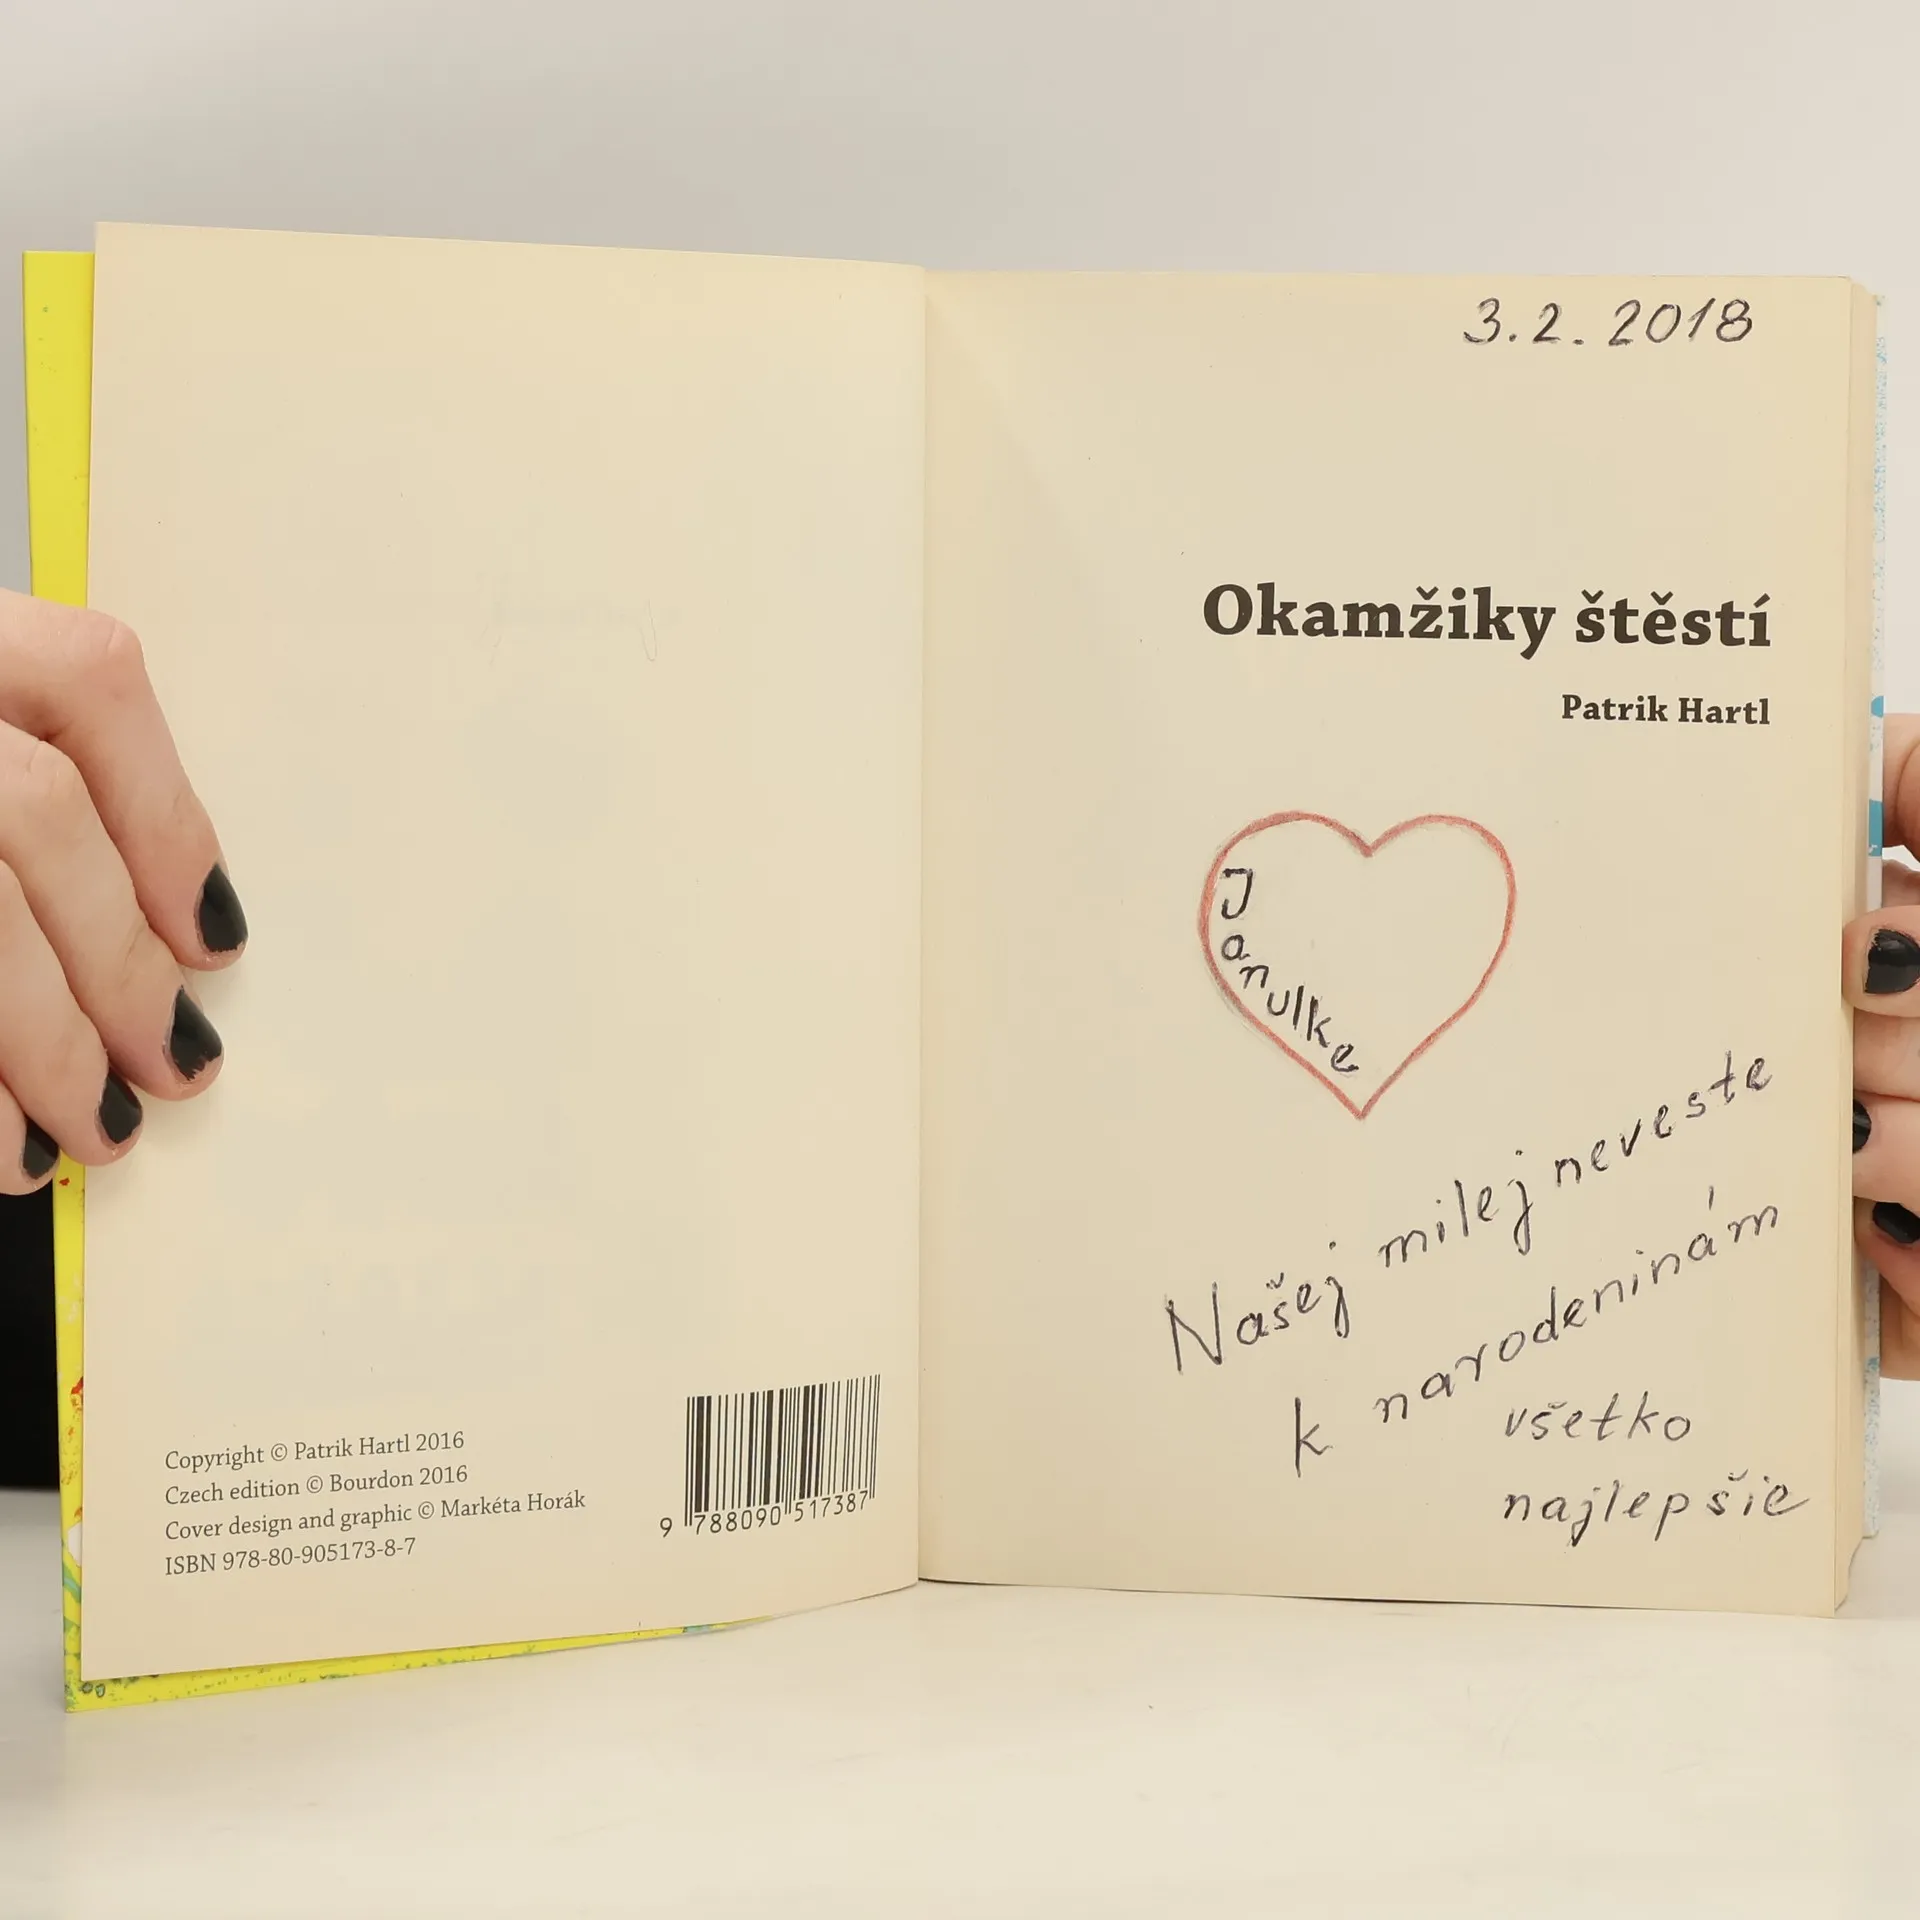 Copyright © Patrik Hartl 2016
Czech edition © Bourdon 2016
Cover design and graphic © Markéta Horák
ISBN 978-80-905173-8-7
9 788090 517387
3.2.2018
Okamžiky štěstí
Patrik Hartl
Janulke
Našej milej neveste
k narodeninám
všetko
najlepšie